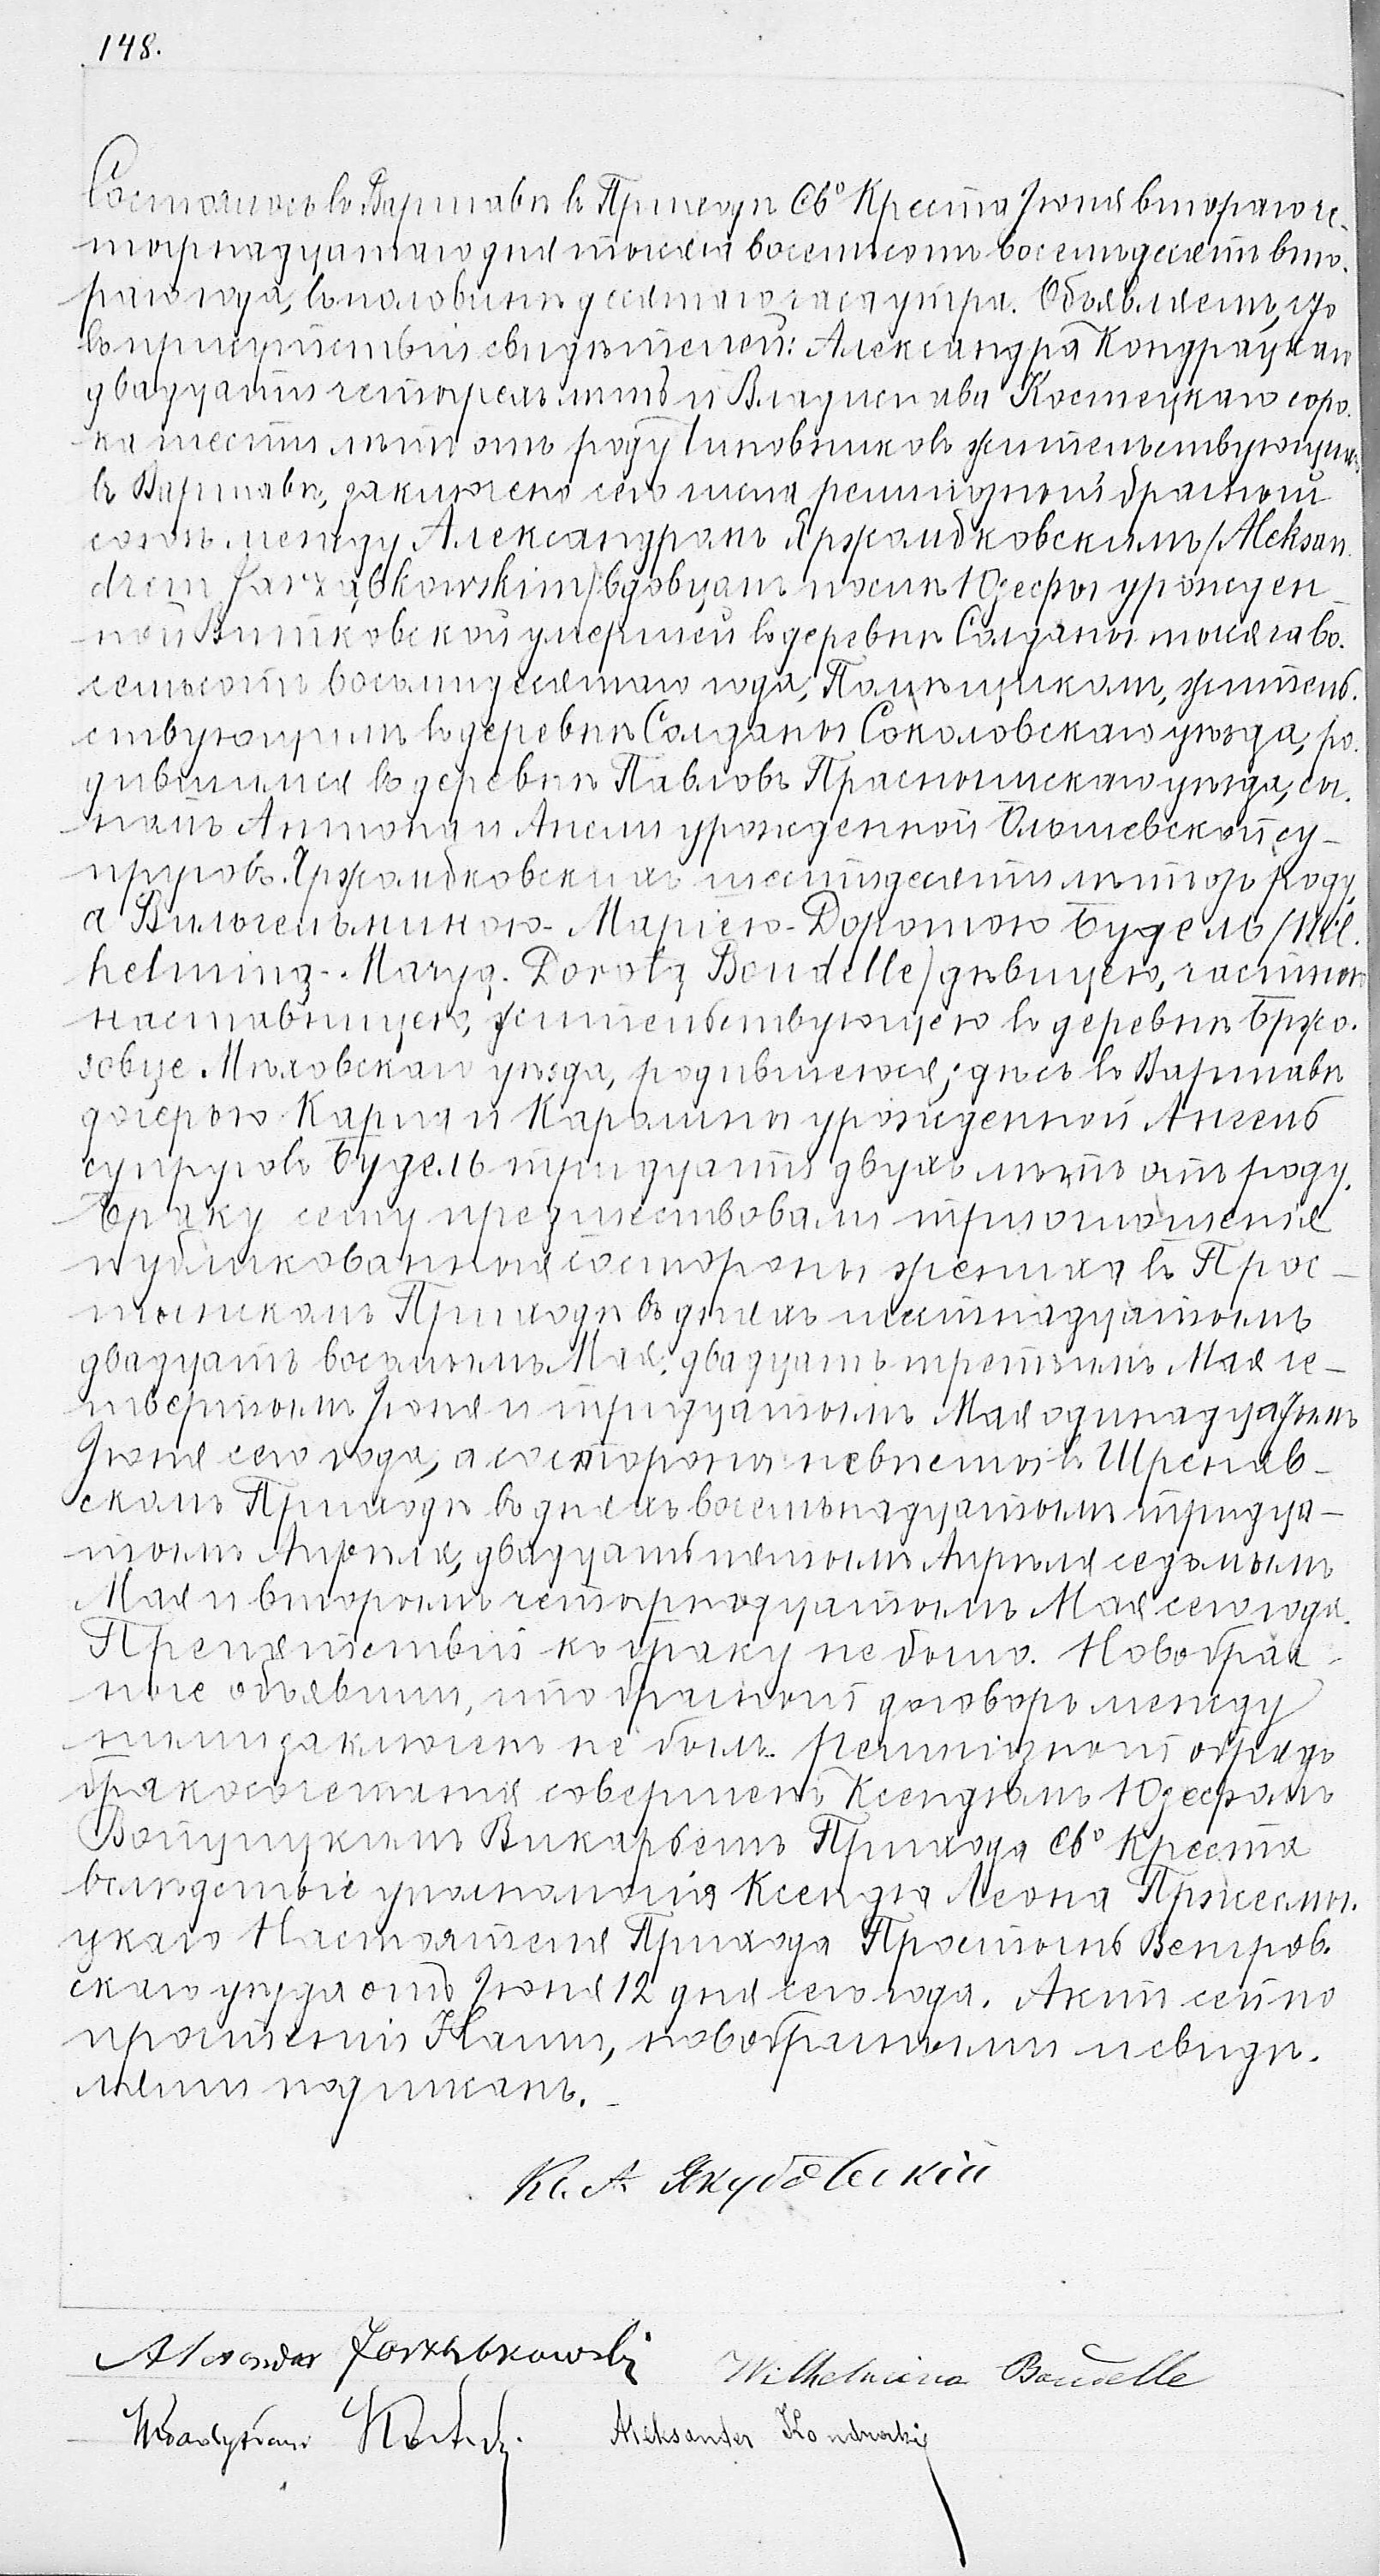 148.
Состоялось въ Варшавѣ въ Приходѣ Св° Креста Іюня втораго че-
тырнадцатаго дня тысяча восемьсотъ восемьдесятъ вто-
раго года, въ половинѣ десятаго часа утра. Объявляемъ, что
въ присутствіи свидѣтелей: Александра Кондрацкаго
двадцати четырехъ лѣтъ и Владислава Костецкаго соро-
ка шести лѣтъ отъ роду Чиновниковъ жительствующихъ
въ Варшавѣ, заключено сего числа религіозный брачный
союзъ между Александромъ Яржомбковскимъ /Aleksan-
drem Jarząbkowskim/ вдовцомъ послѣ Юзефы урожден-
ной Витковской умершей въ деревнѣ Солданы тысяча во-
семьсотъ восьмидесятаго года, Помѣщикомъ, житель-
ствующимъ въ деревнѣ Солданы Соколовскаго уѣзда, ро-
дившимся въ деревнѣ Павловъ Праснышскаго уѣзда, сы-
номъ Антона и Анели урожденной Ольшевской су-
пруговъ Яржомбковскихъ шестидесяти лѣтъ отъ роду,
а Вильгельминою-Маріею-Доротою Будель /Wil-
helminą-Maryą-Dorotą Boudelle/ дѣвицею, частною
наставницею, жительствующею въ деревнѣ Бржо-
зовце Мѣховскаго уѣзда, родившеюся здѣсь въ Варшавѣ
дочерью Карла и Каролины урожденной Ангель
супруговъ Будель тридцати двухъ лѣтъ отъ роду.
Браку сему предшествовали три оглашенія
публикованныя со стороны жениха въ Прос-
тынскомъ Приходѣ въ дняхъ шестнадцатомъ
двадцать восьмомъ Мая, двадцать третьимъ Мая че-
твертомъ Іюня и тридцатомъ Мая одинадцатомъ
Іюня сего года, а со стороны невѣсты въ Шреняв-
скомъ Приходѣ въ дняхъ восемьнадцатомъ тридца-
томъ Апрѣля, двадцать пятомъ Апрѣля седьмомъ
Мая и второмъ четырнадцатомъ Мая сего года.
Препятствій къ браку не было. Новобрач-
ные объявили, что брачный договоръ между
ними заключенъ не былъ. Религіозный обрядъ
бракосочетанія совершенъ Ксендзомъ Юзефомъ
Войцицкимъ Викарьемъ Прихода Св° Креста
вслѣдствіе уполномочія Ксендза Леона Пржесмы-
цкаго Настоятеля Прихода Простынь Венгров-
скаго уѣзда отъ Іюня 12 дня сего года. Актъ сей по
прочтеніи Нами, новобрачными и свидѣ-
телями подписанъ.
Кс. А. Якубовскій
Alexander Jarząbkowski Wilhelmina Boudelle
Władysław Aleksander Kondracki